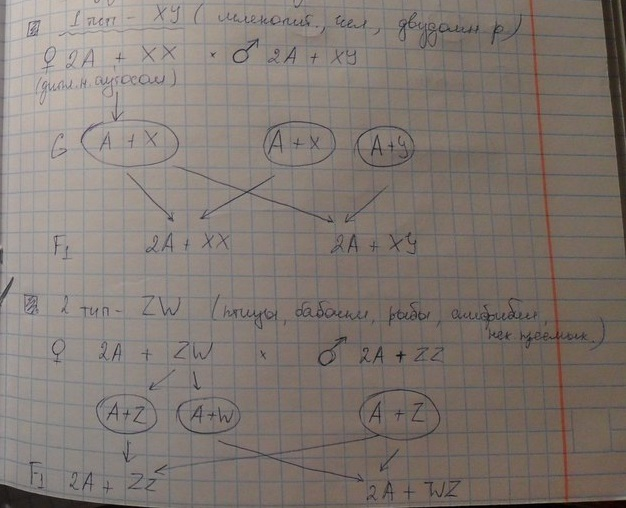 1 тип - XY (млекопит., чел, двудомн. р)
♀ 2A + XX × ♂ 2A + XY
(дипл. н. аутосом)
G A + X A + X A+Y
F1 2A + XX 2A + XY
2 тип - ZW (птицы, бабочки, рыбы, амфибии,
нек.
♀ 2A + ZW × ♂ 2A + ZZ
A+Z A+W A + Z
F1 2A + ZZ 2A + WZ